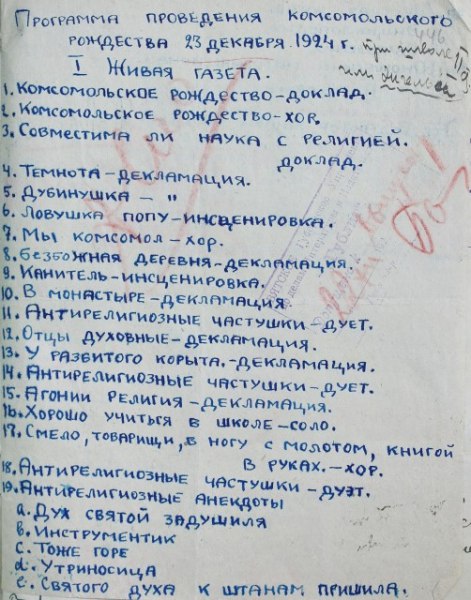 Программа проведения комсомольского
рождества 23 декабря 1924 г.
при школе II
или
I Живая газета.
1. Комсомольское рождество-доклад.
2. Комсомольское рождество-хор.
3. Совместима ли наука с религией.
доклад.
4. Темнота-декламация.
5. Дубинушка - "
6. Ловушка попу-инсценировка.
7. Мы комсомол-хор.
8. Безбожная деревня-декламация.
9. Канитель-инсценировка.
10. В монастыре-декламация
11. Антирелигиозные частушки-дует.
12. Отцы духовные-декламация.
13. У развитого корыта.-декламация.
14. Антирелигиозные частушки-дует.
15. Агонии религия-декламация.
16. Хорошо учиться в школе-соло.
17. Смело, товарищи, в ногу с молотом, книгой
в руках.-хор.
18. Антирелигиозные частушки-дуэт.
19. Антирелигиозные анекдоты
a. Дух святой задушила
b. Инструментик
c. Тоже горе
d. Утриносица
e. Святого духа к штанам пришила.